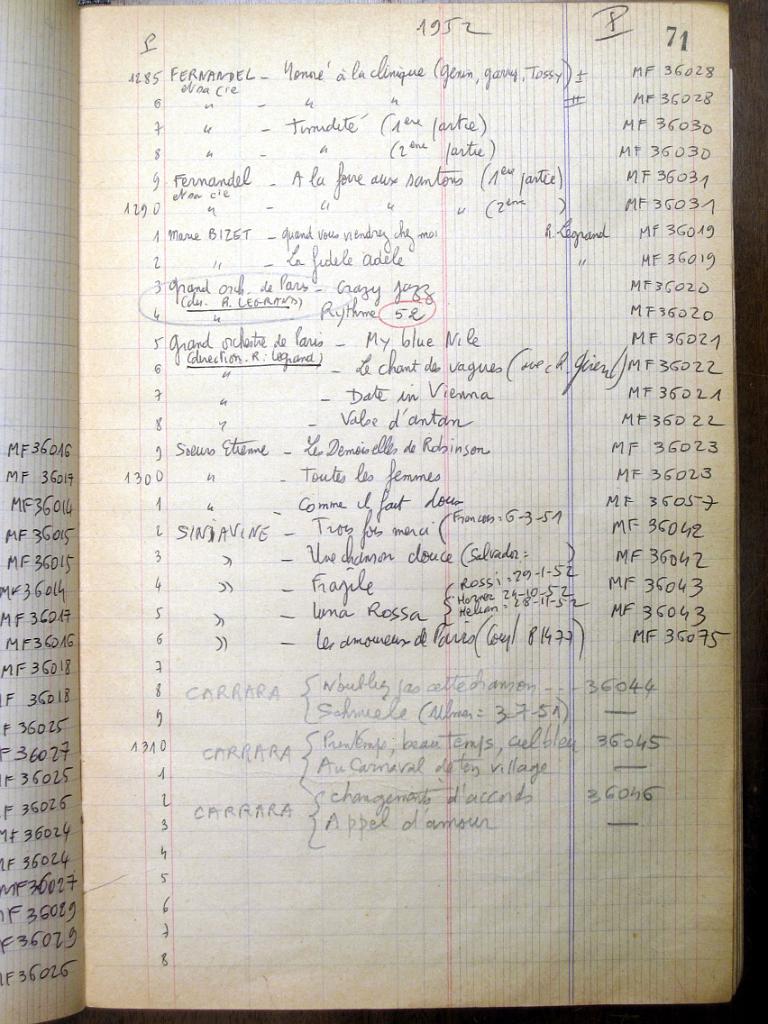 1952
P
P
71
1285 FERNANDEL - Honoré à la clinique (Genin, Garvy, Tossy) I MF 36028
et sa cie
6 " - " " II MF 36028
7 " - Timidité (1ère partie) MF 36030
8 " - " (2ème partie) MF 36030
9 Fernandel - A la foire aux santons (1ère partie) MF 36031
et sa cie
1290 " - " " " (2ème ) MF 36031
1 Marie BIZET - quand vous viendrez chez moi R. Legrand MF 36019
2 " - La fidèle adèle " MF 36019
3 Grand orch. de Paris - Crazy jazz MF 36020
(dir. R. LEGRAND)
4 " Rythme 52 MF 36020
5 Grand orchestre de Paris - My blue Nile MF 36021
(direction. R. Legrand)
6 " - Le chant des vagues (avec R. ) MF 36022
7 " - Date in Vienna MF 36021
8 " - Valse d'antan MF 36022
9 Soeurs Etienne - Les Demoiselles de Robinson MF 36023
1300 " - Toutes les femmes MF 36023
1 " - Comme il fait doux MF 36057
2 SINIAVINE - Trois fois merci (Francois = 6-3-51 MF 36042
3 " - Une chanson douce (Salvador = ) MF 36042
4 " - Fragile MF 36043
5 " - Luna Rossa { Rossi = 29-1-52 MF 36043
24-10-52
Hélian = 28-11-52
6 " - Les amoureux de Paris ( P 1477) MF 36075
7
8 CARRARA { N'oubliez pas cette chanson --- 36044
9 (3-7-51) —
1310 CARRARA { Printemps, beau temps, ciel bleu 36045
1 Au Carnaval de ton village —
2 CARRARA { Changements d'accords 36046
3 Appel d'amour —
4
5
6
7
8
MF36016
MF 36017
MF36014
MF36015
MF36015
MF36014
MF36017
MF36016
MF36018
F 36018
F 36025
F 36027
F 36025
F 36026
MF 36024
F 36024
MF36027
F 36029
F 36029
F 36026